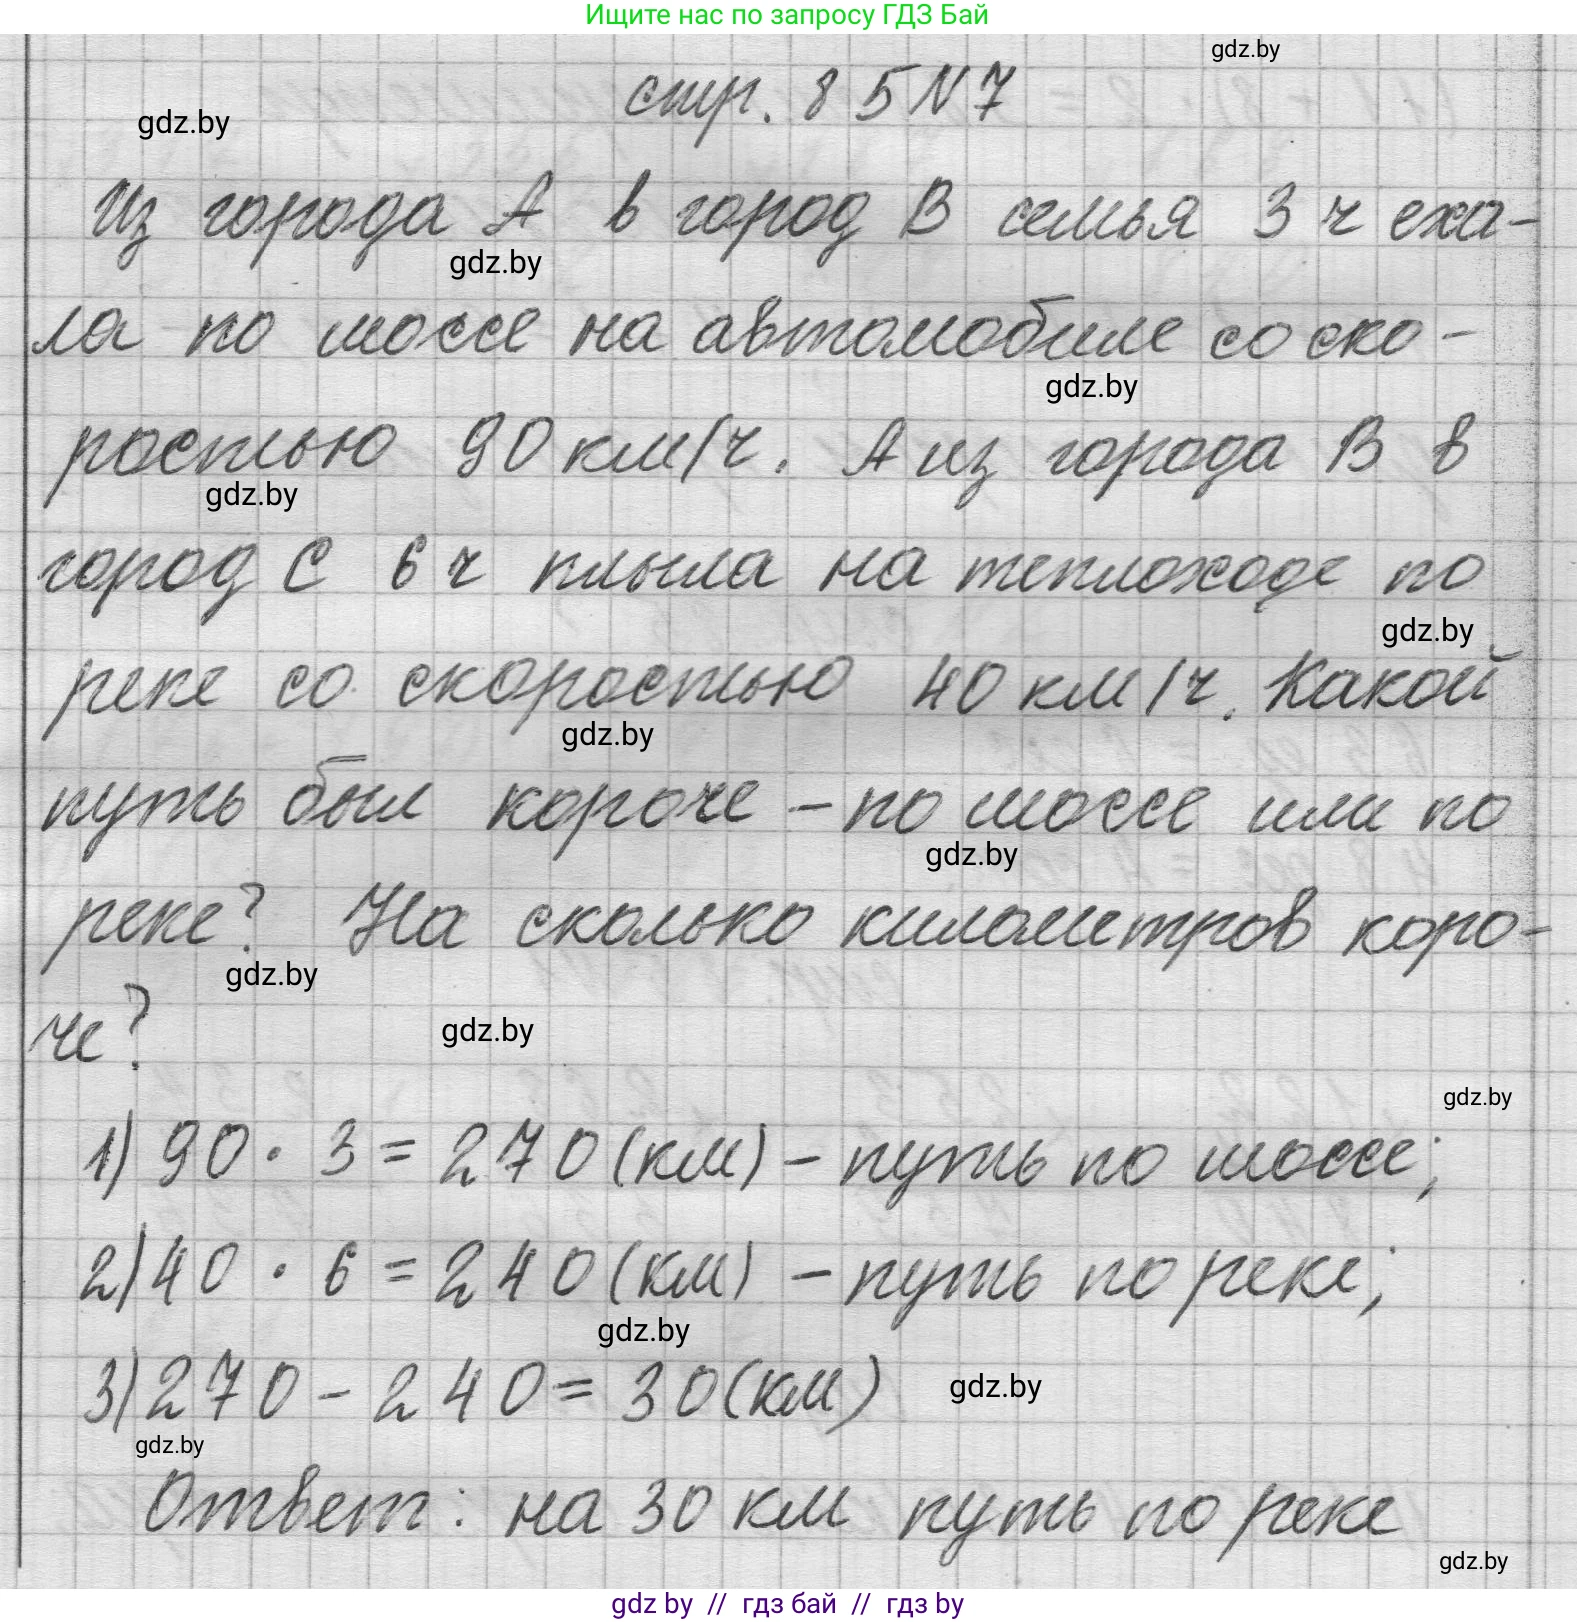 Ищите нас по запросу ГДЗ Бай
gdz.by
стр. 85 N 7
gdz.by
Из города А в город В семья 3 ч еха-
gdz.by
ла по шоссе на автомобиле со ско-
gdz.by
ростью 90 км/ч. А из города В в
gdz.by
город С 6 ч плыла на теплоходе по
gdz.by
реке со скоростью 40 км/ч. Какой
gdz.by
путь был короче – по шоссе или по
gdz.by
реке? На сколько километров коро-
gdz.by
че?
gdz.by
gdz.by
1) 90 · 3 = 270 (км) – путь по шоссе;
2) 40 · 6 = 240 (км) – путь по реке;
gdz.by
3) 270 - 240 = 30 (км)
gdz.by
gdz.by
Ответ: на 30 км путь по реке
gdz.by
gdz by // гдз бай // гдз by